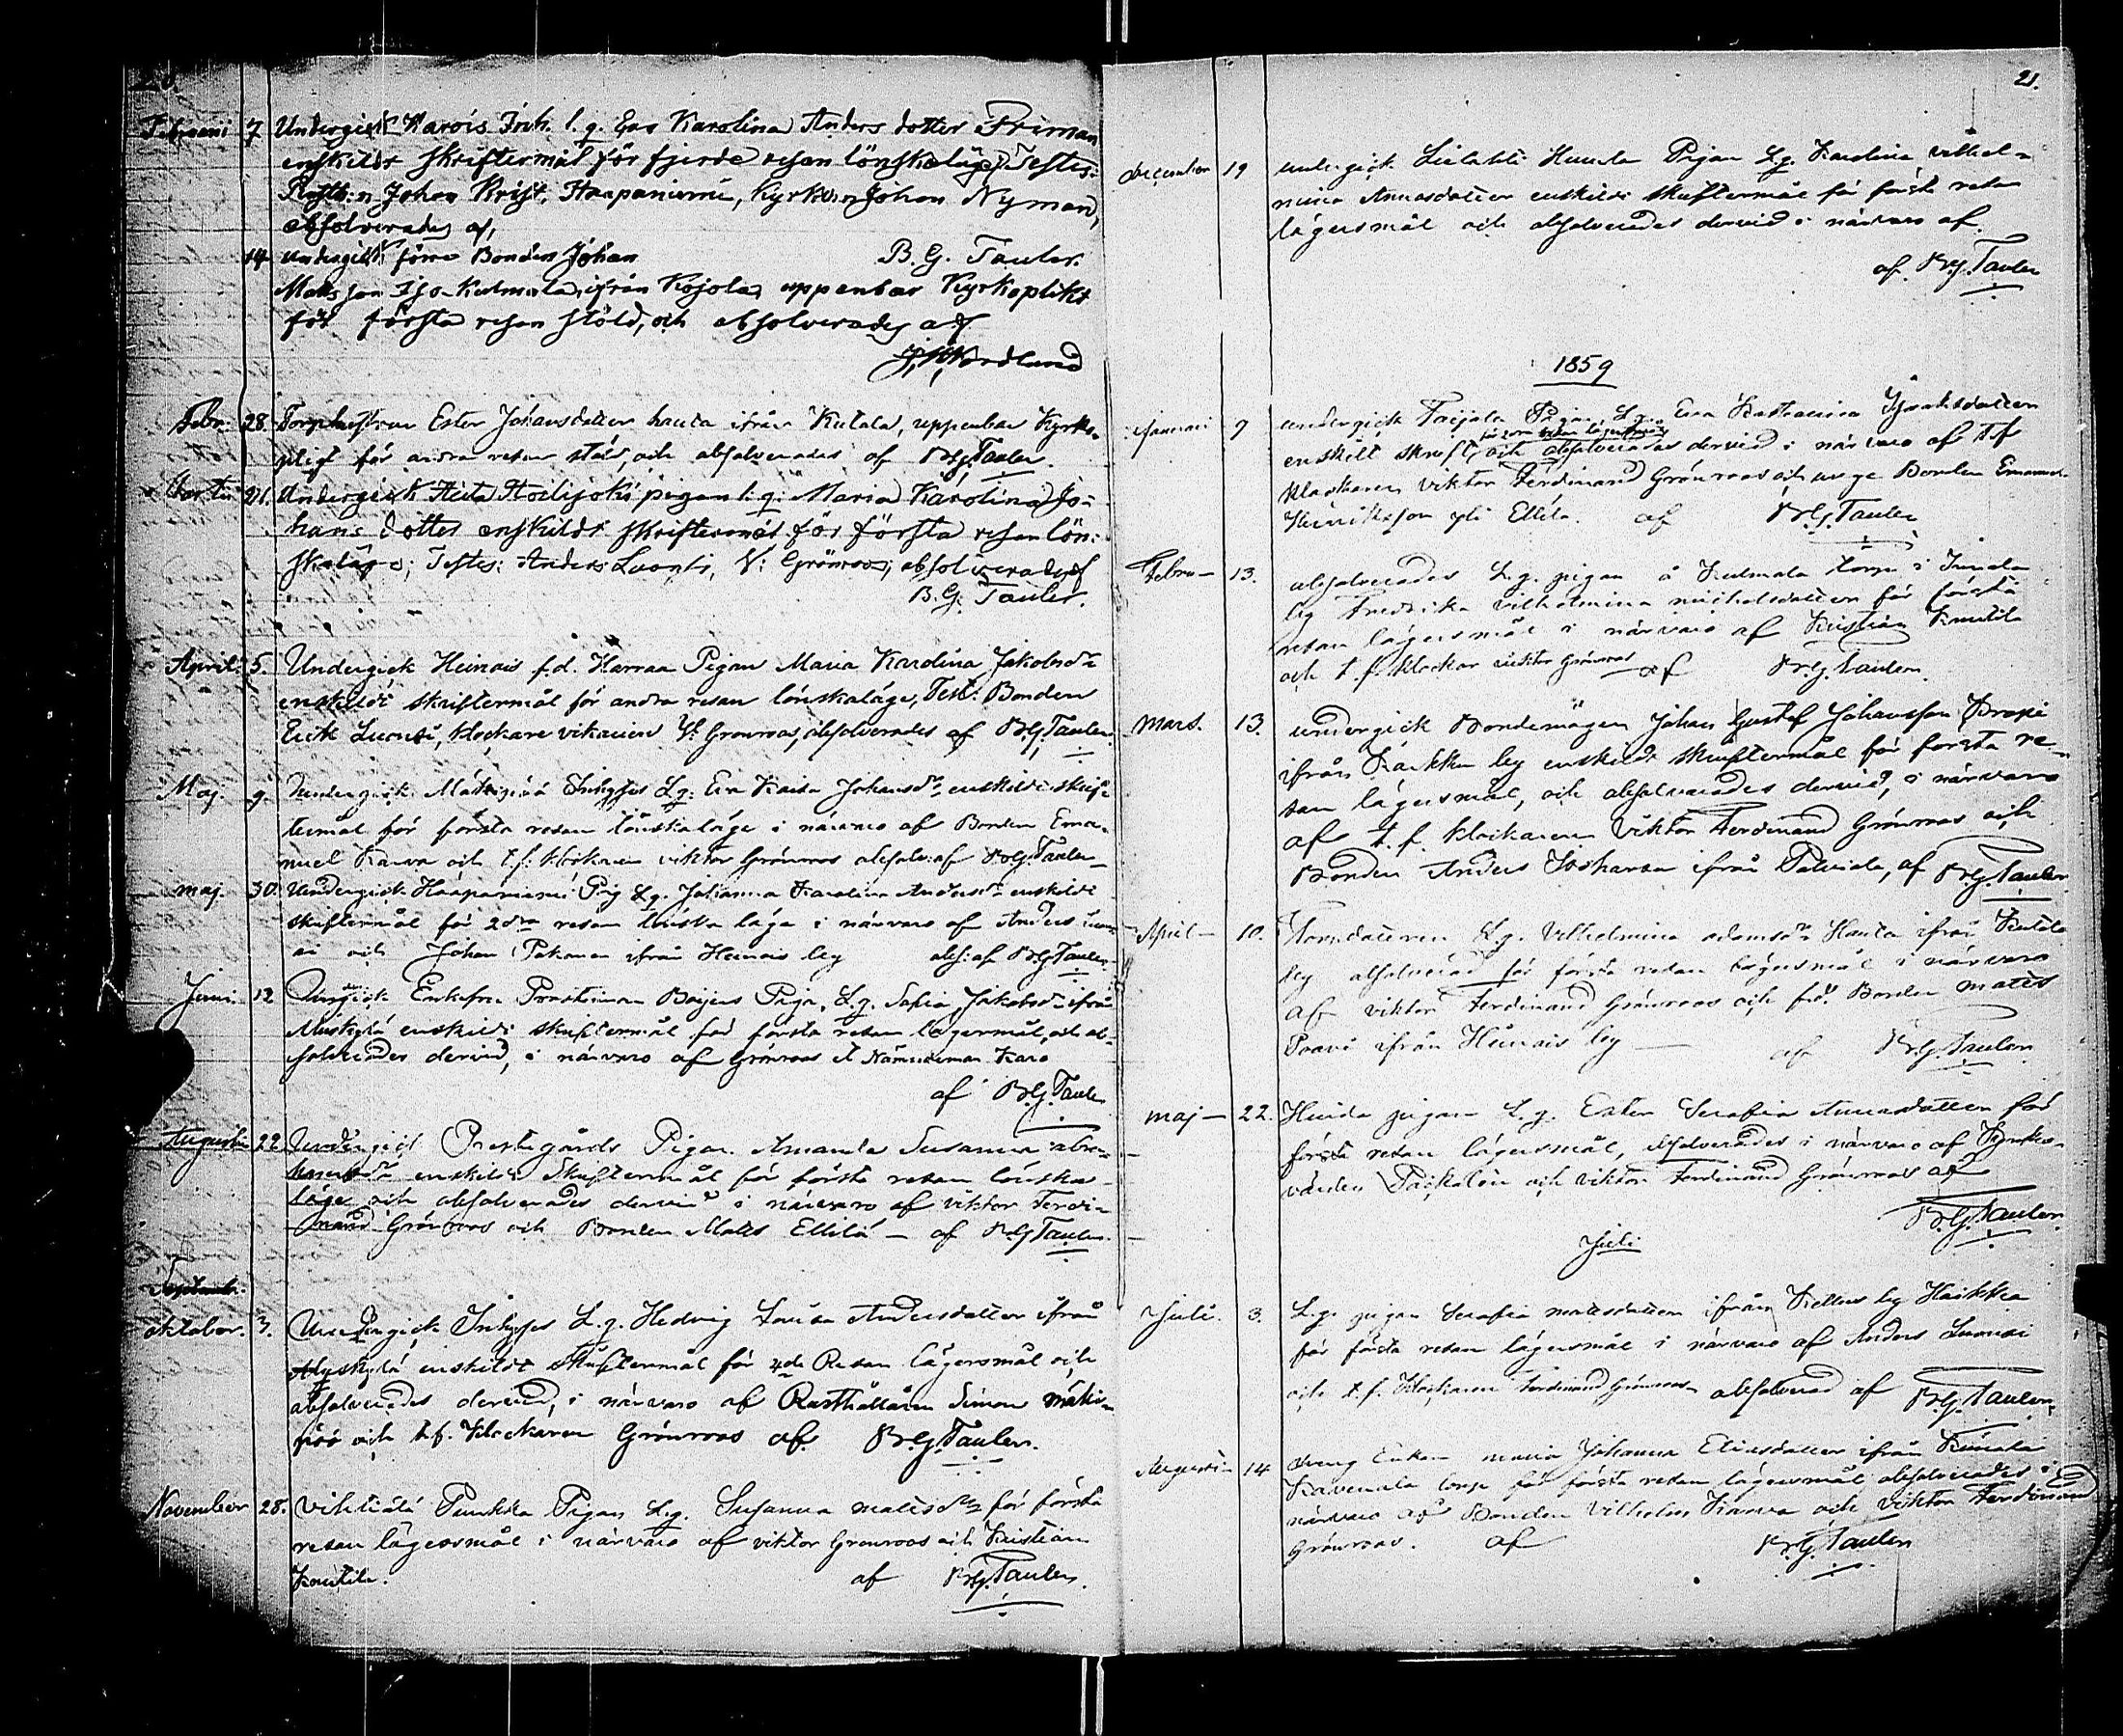 Februari 7 Undergick Karois Inh. l. q. Eva Karolina Anders dotter Friman
enskildt skriftermål för fjerde resan lönskaläge, Testes:
Johan Krist. Haapaniemi, Kyrkv:n Johan Nyman,
absolverades af,
B. G. Taulér.
14 undergick förre Bonden Johan
Matsson Iso-Kulmala, ifrån Kojola, uppenbar Kyrkoplikt
för första resan stöld, och absolverades af
Nordlund
Febr: 28 Torphustrun Ester Johansdotter hauta ifrån Kutala, uppenbar Kyrko-
pligt för andra resan stöld, och absolverades af B.G. Taulér.
21. Undergick pigan l: q: Maria Karolina Jo-
hans dotter enskildt skriftermål för första resan lön-
skaläge; Testes: Anders Luonsi, V: Grönroos; absolverades af
B. G. Taulér.
April: 5. Undergick Heinois f.d. Harraa Pigan Maria Karolina Jakobsdr
enskildt skriftermål för andra resan lönskaläge, Test: Bonden
Erik Luonsi, klockare vikarien V: Grönroos, absolverades af B.G. Taulér.
Maj. 9. Undergick Inhyses L.q. Eva Kaisa Johansdr enskildt skrif-
termål för första resan lönskaläge i närvaro af Bonden Ema-
nuel Karva och t.f. klockaren viktor Grönroos absolv: af B.G. Taulér
maj. 30. Undergick Haapaniemi Pig. L.q. Johanna Karolina Andersdr enskildt
skriftermål för 2dra resan lönska läge i närvaro af Anders Luon-
si och Johan Pakanen ifrån Heinois by abs: af B.G. Taulér
Juni 12 Undergick Enkefru Prostinnan Pigan L.q. Sofia Jakobsdr ifrån
enskildt skriftermål för första resan lägersmål, och ab-
solverades dervid, i närvaro af Grönroos et Nämndeman Karo
af B.G. Taulér
Augusti 22 Undergick Prestgårds Pigan Amanda Susanna Abra-
hamsdr enskildt Skriftermål för första resan lönska-
läge och absolverades dervid i närvaro af viktor Ferdi-
nand Grönroos och Bonden Matts Ellilä — af B.G. Taulér.
Septemb:
oktober. 3. Undergick Inhyses L.q. Hedvig Lovisa Andersdotter ifrån
Myskylä enskildt skriftermål för 4de Resan lägersmål och
absolverades dervid, i närvaro af Rusthållaren Simon Mäki-
och t.f. Klockaren Grönroos af. B.G. Taulér.
November 28. Punkka Pigan L.q. Susanna matts dr för första
resan lägersmål i närvaro af viktor Grönroos och Kristian
Knuutila. af B.G. Taulér
21.
december 19 undergick Hunda Pigan L.q. Karolina vilhel-
mina Annasdotter enskildt skriftermål för första resan
lägersmål och absolverades dervid i närvaro af.
af B.G. Taulér
1859
Januari 9 undergick Pigan L.q. Eva Katharina Isaksdotter
enskilt skrift, och absolverades dervid i närvaro af t.f
klockaren Viktor Ferdinand Grönroos och unge Bonden Emanuel
Henriksson yli Ellilä. af B.G. Taulér
Febru— 13. absolverades L.q. pigan å Kulmala torp i
by Fredrika Vilhelmina michelsdotter för första
resan lägersmål i närvaro af Kristian Knutila
och t. f. klockar viktor Grönroos af B.G. Taulér.
Mars. 13. undergick Bondemågen Johan Gustaf Johansson
ifrån by enskildt skriftermål för första re-
san lägersmål, och absolverades dervid, i närvaro
af t. f. klockaren Viktor Ferdinand Grönroos och
Bonden Anders ifrån af B.G. Taulér
April— 10. Torpdottren L.q. Vilhelmina adamsdr Hauta ifrån Kutala
by absolverad för första resan lägersmål i närvaro
af viktor Ferdinand Grönroos och Bonden matts
Paavi ifrån Heinois by — af B.G. Taulér
maj— 22. pigan L. q. Ester Serafia Annasdotter för
första resan lägersmål, absolverades i närvaro af Kyrko-
värden och viktor Ferdinand Grönroos af
B.G. Taulér
Juli
Juli. 3. L.q. pigan Serafia mattsdotter ifrån Kellus by
för första resan lägersmål i närvaro af Anders Luonsi
och t.f. Klockaren Ferdinand Grönroos absolverad af B.G. Taulér.
Augusti— 14 Enkan maria Johanna Eliasdotter ifrån
torp för första resan lägersmål absolverades i
närvaro af Bonden Vilhelm Karva och viktor Ferdinand
Grönroos. af B.G. Taulér